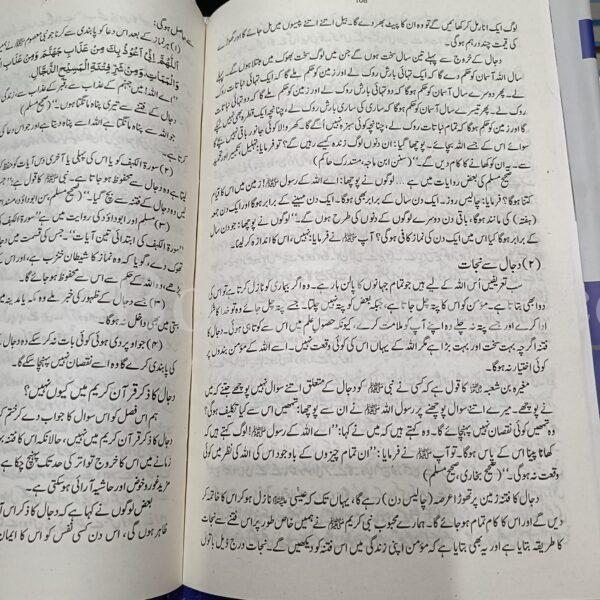 108
لوگ ایک انار مل کر کھائیں گے تو وہ ان کا پیٹ بھر دے گا۔ بیل اتنے اتنے پیسوں میں مل جائے گا اور گھوڑے
کی قیمت چند درہم ہوگی۔
دجال کے خروج سے پہلے تین سال سخت ہوں گے جن میں لوگ سخت بھوک میں مبتلا ہوں گے۔ پہلے
سال اللہ آسمان کو حکم دے گا کہ ایک تہائی بارش روک لے اور زمین کو حکم دے گا کہ ایک تہائی نباتات روک
لے۔ پھر دوسرے سال آسمان کو حکم ہوگا کہ دو تہائی بارش روک لے اور زمین کو حکم ہوگا کہ دو تہائی نباتات روک
لے۔ پھر تیسرے سال آسمان کو حکم ہوگا کہ ساری کی ساری بارش روک لے، چنانچہ ایک قطرہ بھی نہیں
گا اور زمین کو حکم ہوگا کہ تمام نباتات روک لے، چنانچہ کوئی سبزہ نہیں اُگے گا۔ کھر والا کوئی جانور باقی نہیں بچے
سوائے اس کے جسے اللہ چاہے۔ پوچھا گیا: ان دنوں لوگ زندہ کیسے رہیں گے؟ تو فرمایا: تہلیل، تکبیر اور تحمید
سے۔ یہ ان کو کھانے کا کام دیں گے۔“ (سنن ابن ماجہ، مستدرک حاکم)
صحیح مسلم کی بعض روایات میں ہے ... لوگوں نے پوچھا: اے اللہ کے رسول ﷺ! زمین میں اس کا قیام
کتنا ہوگا؟ فرمایا: چالیس روز۔ ایک دن سال کے برابر بھی ہوگا۔ ایک دن مہینے کے برابر ہوگا اور ایک دن جمعہ
(ہفتہ) کی مانند ہوگا، باقی دن دوسرے لوگوں کے دنوں کی طرح ہوں گے۔“ لوگوں نے پوچھا: جو دن سال
کے برابر ہوگا کیا اس میں ایک دن کی نماز کافی ہوگی؟ آپ ﷺ نے فرمایا: نہیں، اس کا اندازہ کر لینا۔
(۲) دجال سے نجات
سب تعریفیں اُس اللہ کے لیے ہیں جو تمام جہانوں کا پالن ہار ہے۔ وہ اگر بیماری کو نازل کرتا ہے تو اس کی
دوا بھی بتاتا ہے۔ مؤمن کو اس کا پتہ چل جاتا ہے، جبکہ بعض کو پتہ نہیں چلتا۔ جسے پتہ چل جائے وہ تو خدا کا شکر
ادا کرے اور جسے پتہ نہ چلے وہ اپنے آپ کو ملامت کرے، کیونکہ حصولِ علم میں اس سے کوتاہی ہوئی۔ دجال کا
فتنہ اگرچہ بہت سخت اور بہت بڑا ہے مگر اللہ کے یہاں اس کی کوئی وقعت نہیں۔ اسے اللہ کے مؤمن بندوں پر
کوئی اختیار نہ ہوگا۔
مغیرہ بن شعبہ کا قول ہے کہ کسی نے نبی ﷺ کو دجال کے متعلق اتنے سوال نہیں پوچھے جتنے کہ میں
نے پوچھے۔ میرے اتنے سوال پوچھنے پر رسول اللہ ﷺ نے ان سے پوچھا: تمہیں اس سے کیا تکلیف ہوگی؟
وہ تمہیں کوئی نقصان نہیں پہنچائے گا۔ وہ کہتے ہیں کہ میں نے کہا: ”اے اللہ کے رسول ﷺ! لوگ کہتے ہیں کہ
کھانا پینا اس کے پاس ہوگا۔ تو آپ ﷺ نے فرمایا: ”ان تمام چیزوں کے باوجود اس کی اللہ کی نظر میں کوئی
وقعت نہ ہوگی۔“ (صحیح بخاری، صحیح مسلم)
دجال کا فتنہ زمین پر تھوڑا عرصہ (چالیس دن) رہے گا، یہاں تک کہ عیسیٰ نازل ہو کر اس کا خاتمہ کر
دیں گے اور اس کا کام تمام ہو جائے گا۔ ہمارے محبوب نبی کریم ﷺ نے ہمیں خاص طور پر اس فتنے سے نجات
کا طریقہ بتایا ہے اور یہ بھی بتایا ہے کہ مؤمن اپنی زندگی میں اس فتنہ کو دیکھیں گے۔ نجات درج ذیل باتوں
سے حاصل ہوگی:
(۱) ہر نماز کے بعد اس دعا کو پابندی سے کرنا جو نبی معصوم ﷺ نے
اَللّٰهُمَّ اِنِّیْ اَعُوْذُ بِكَ مِنْ عَذَابِ جَهَنَّمَ وَمِنْ عَذَابِ
وَالْمَمَاتِ، وَمِنْ شَرِّ فِتْنَةِ الْمَسِیْحِ الدَّجَّالِ
”اے اللہ! میں جہنم کے عذاب سے، قبر کے عذاب سے، زندگی
دجال کے فتنے سے تیری پناہ مانگتا ہوں۔“ (صحیح مسلم)
جو اللہ سے پناہ مانگتا ہے اللہ اسے پناہ دیتا ہے اور جو اس دعا کی
کرتا ہے۔
(۲) سورۃ الکہف کو یا اس کی پہلی یا آخری دس آیات کو حفظ
لیتا ہے وہ دجال سے محفوظ ہو جاتا ہے۔ نبی ﷺ کا قول ہے:
لیں وہ دجال کے فتنہ سے بچ گیا۔“ (صحیح مسلم، سنن ابوداؤد، مسند
(۳) مسلم اور ابوداؤد ہی کی روایت میں ہے
”سورۃ الکہف کی ابتدائی تین آیات“۔ جس کی قسمت میں دجال
تھوک دے، گویا کہ وہ نماز کا شیطان خنزب ہے، اور اس
پڑھے، وہ اللہ کے حکم سے اس سے محفوظ ہو جائے گا۔
(۳) جسے دجال کے ظہور کی خبر ملے وہ مکہ یا مدینہ میں
بستی میں بھی داخل نہ ہوگا۔
(۴) جو اوپر دی ہوئی کوئی بات نہ کر سکے وہ دجال
کی پابندی کرے گا وہ اسے نقصان نہیں پہنچا سکے گا۔
دجال کا ذکر قرآن کریم میں کیوں نہیں؟
ہم اس فصل کو اس سوال کا جواب دے کر ختم کر
دجال کا ذکر قرآن کریم میں نہیں، حالانکہ اس کا فتنہ
زمانے میں اس کا خروج تواتر کی حد تک پہنچ چکا ہے
مزید غور و خوض اور حاشیہ آرائی ہو سکتی ہے۔
بعض لوگوں نے کہا ہے کہ دجال کا ذکر اس آ
ظاہر ہوں گی، اس دن کسی نفس کو اس کا ایمان